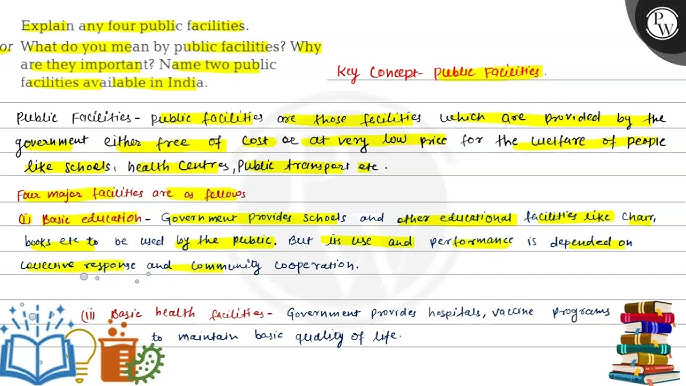 Explain any four public facilities.
or What do you mean by public facilities? Why
are they important? Name two public
facilities available in India.
Key Concept- Public Facilities.
Public Facilities - Public facilities are those facilities which are provided by the
government either free of cost or at very low price for the welfare of people
like schools, health centres, Public transport etc.
Four major facilities are as follows
(i) Basic education - Government provides schools and other educational facilities like chair,
books etc to be used by the public. But its use and performance is depended on
collective response and community cooperation.
(ii) Basic health facilities - Government provides hospitals, vaccine programs
to maintain basic quality of life.
PW